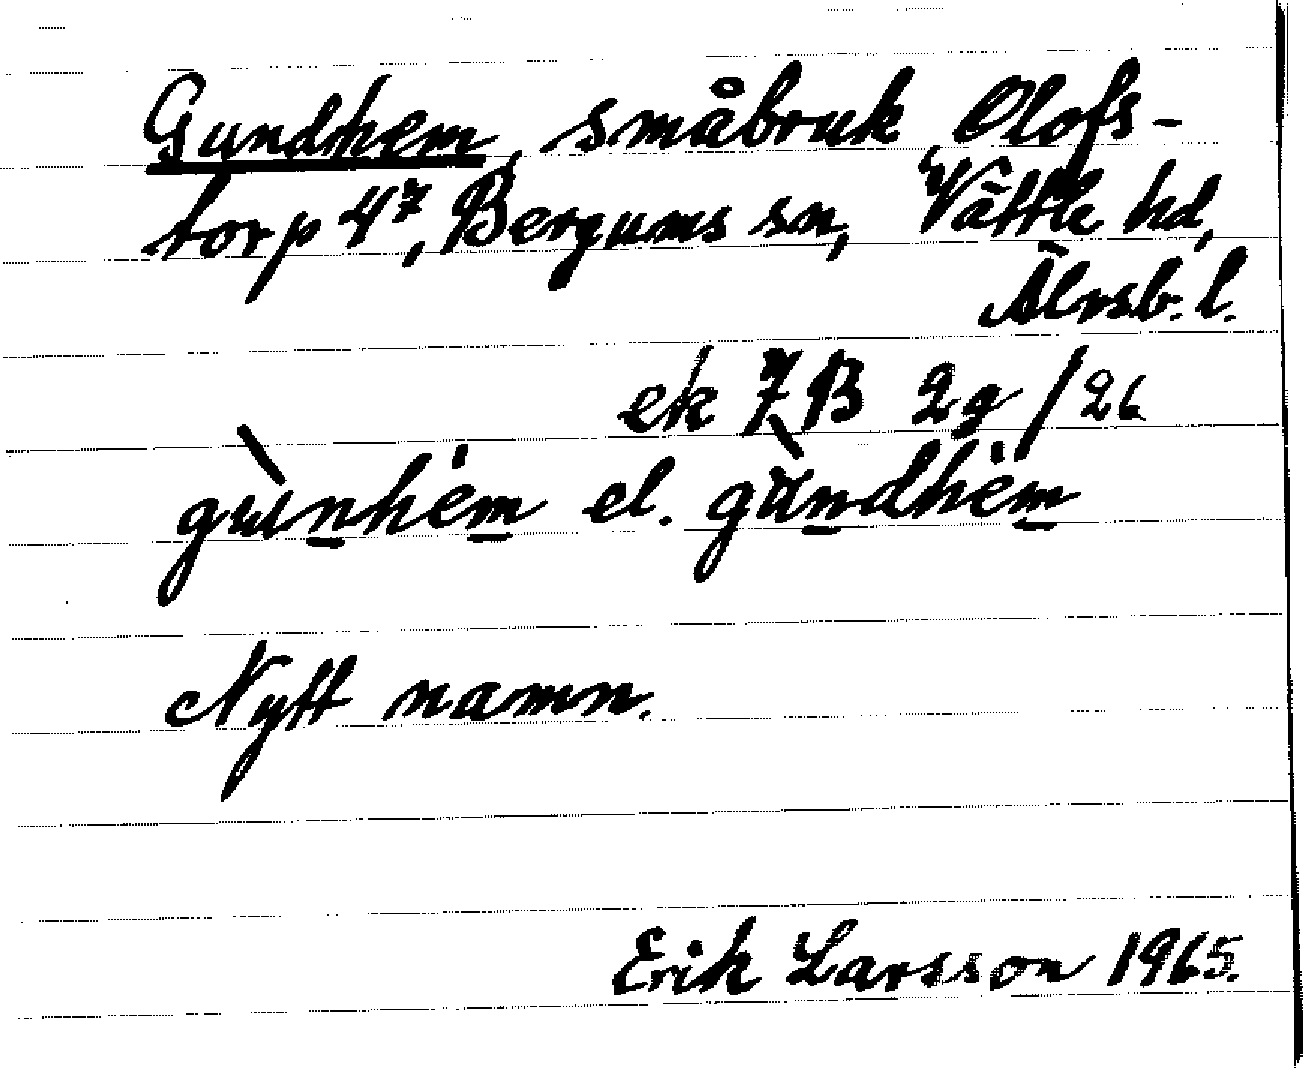 Gundhem, småbruk, Olofs-
torp 4⁷, Bergums sn, Vättle hd,
Älvsb. l.
ek 7B 2g/26
gùnhem el. gùndhem
Nytt namn.
Erik Larsson 1965.